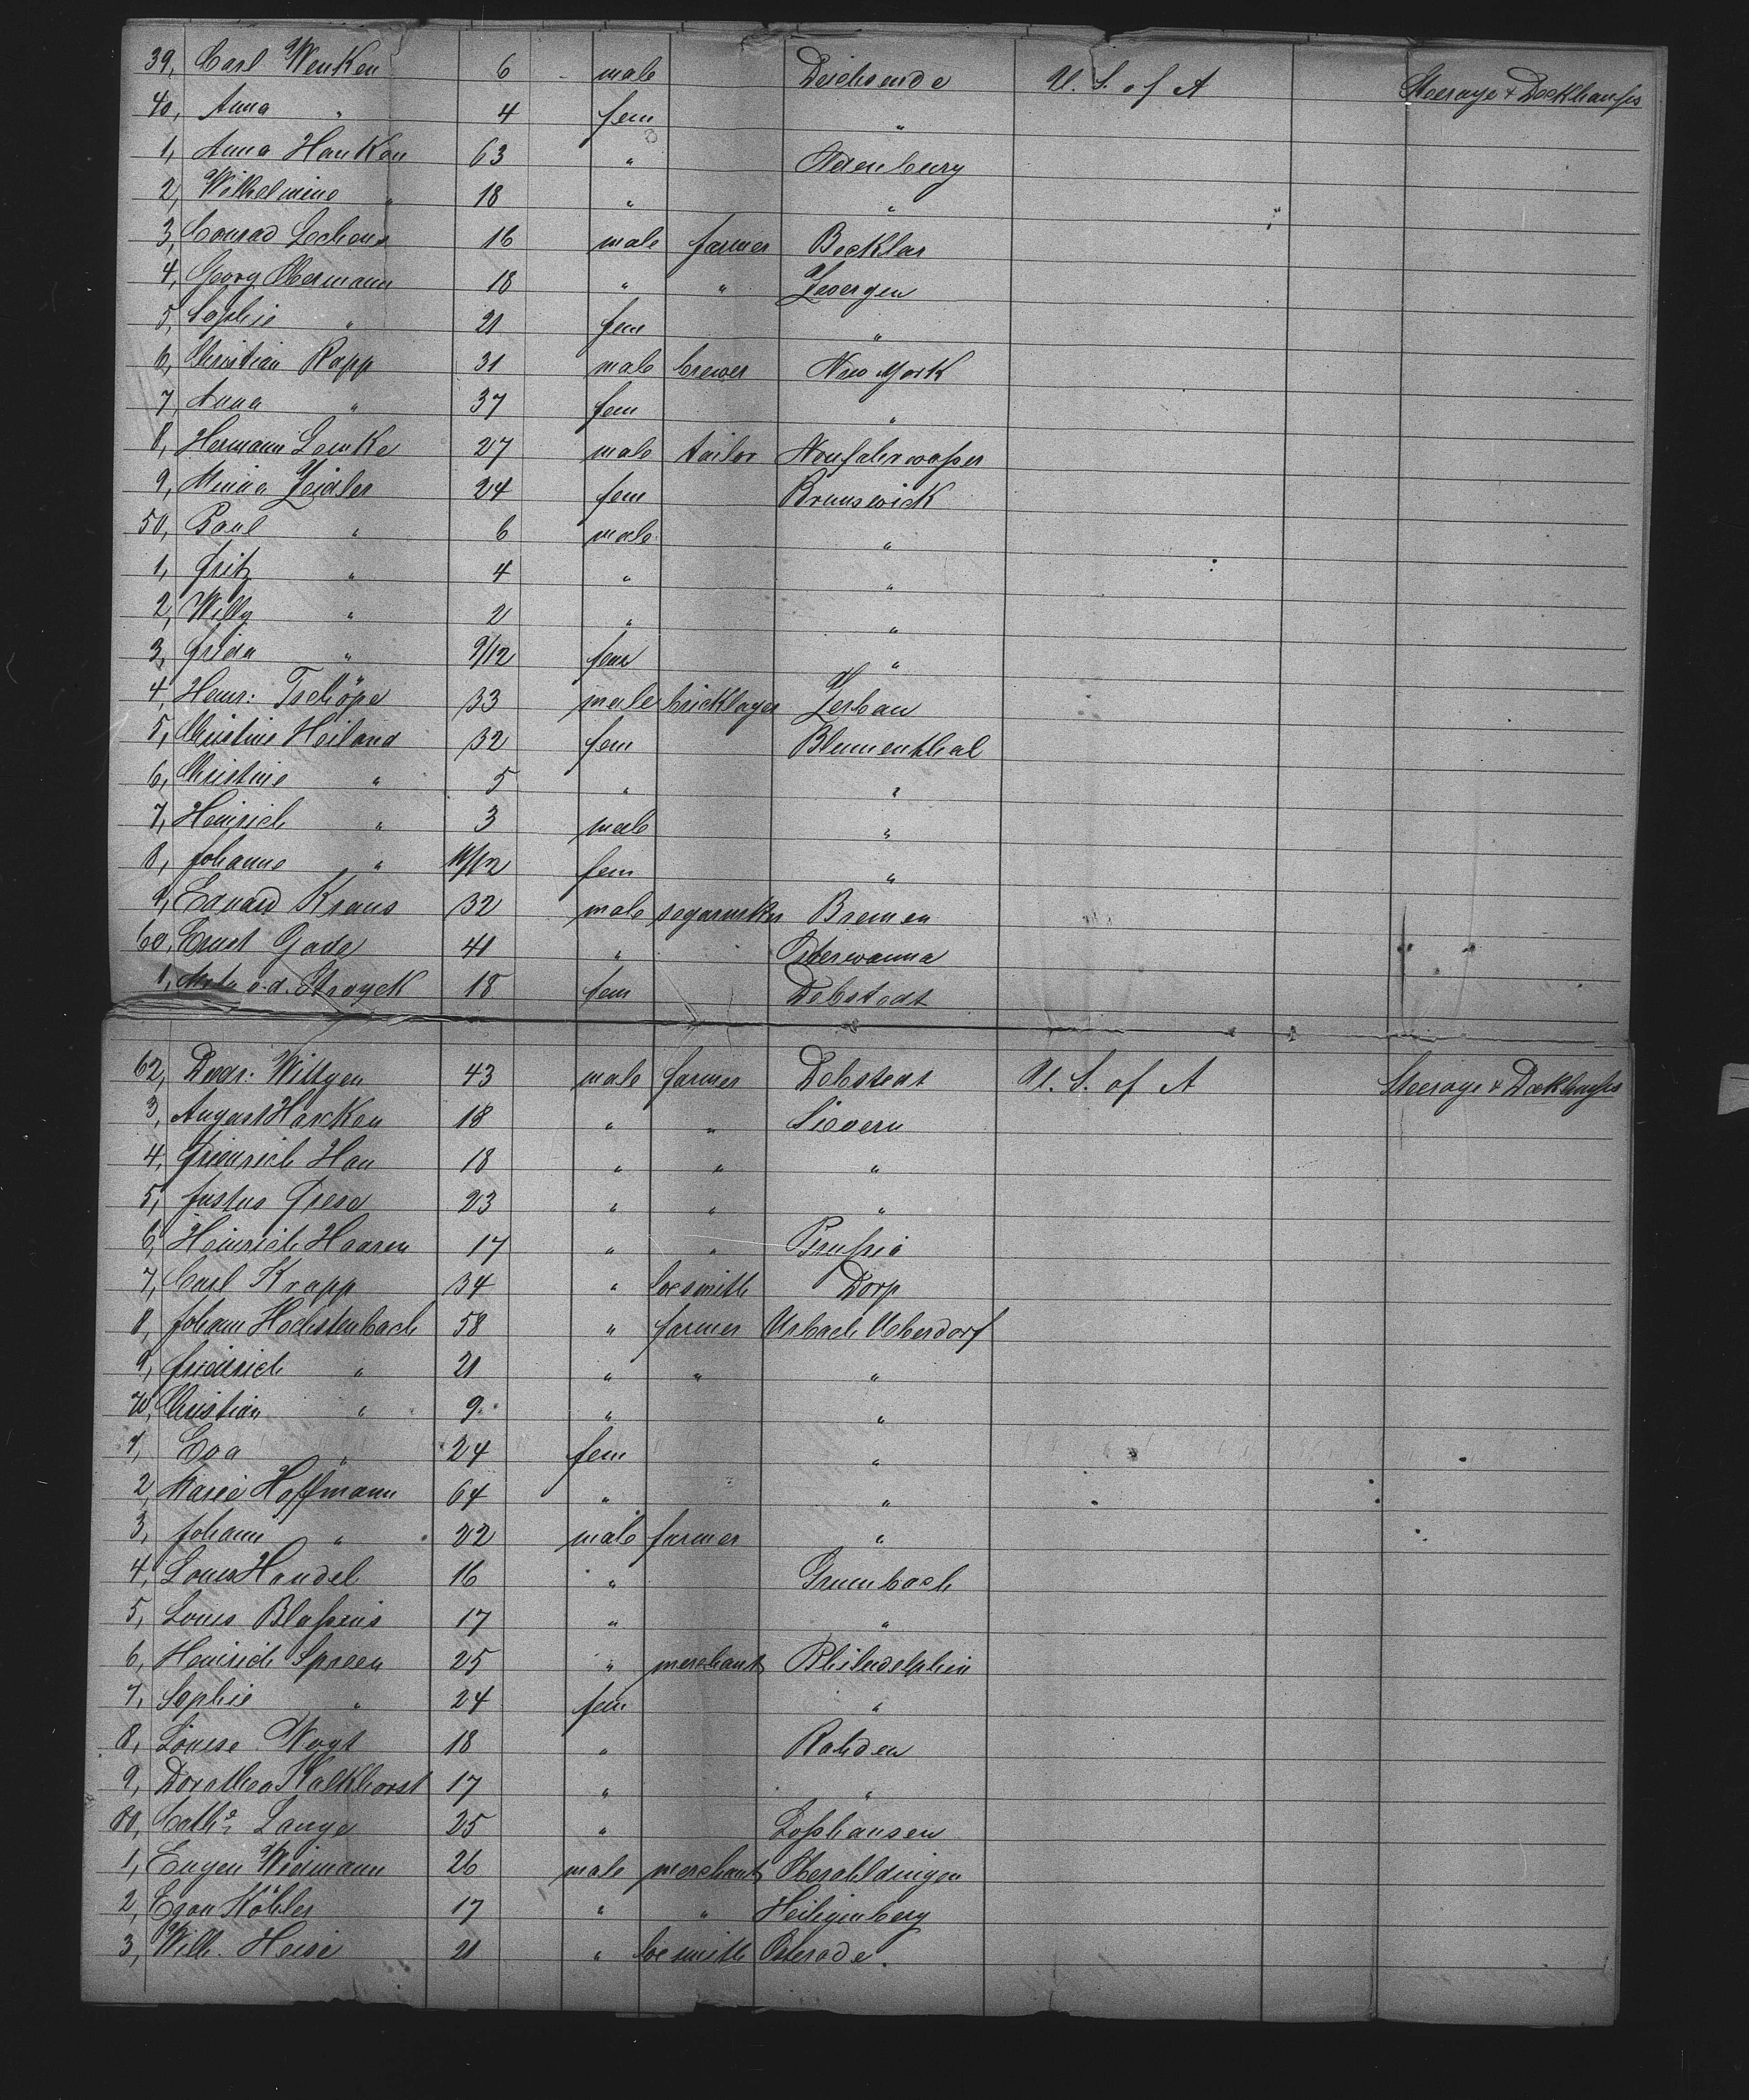 39, Carl Wenken 6 male Deichsende U. S. of A Steerage & Deckhauses
40, Anna " 4 fem "
1, Anna Hanken 63 " Odenburg
2, Wilhelmine " 18 " "
3, Conrad 16 male farmer Becklar
4, Georg Obermann 18 " "
5, Sophie " 21 fem "
6, Christian Rapp 31 male brewer New York
7, Anna " 37 fem "
8, Hermann Lemke 27 male tailor Neufahrwasser
9, Minna Zeidler 24 fem Brunswick
50, Paul " 6 male "
1, Fritz " 4 " "
2, Willy " 2 " "
3, Frida " 9/12 fem "
4, Heinr: Tschöpe 33 male bricklayer Zerbau
5, Christine Heiland 32 fem Blumenthal
6, Christine " 5 " "
7, Heinrich " 3 male "
8, Johanne " 11/12 fem "
9, Eduard Kraus 32 male segarmker Bremen
60, Ernst Gade 41 " Osterwanna
1, Meta v. d. 18 fem Debstedt
62, Diedr: Wiltgen 43 male farmer Debstedt U. S. of A Steerage & Deckhauses
3, August Harcken 18 " " Sievern
4, Friedrich Han 18 " " "
5, Justus 23 " " "
6, Heinrich Haaren 17 " " Prussia
7, Carl Krapp 34 " locsmith Dorp
8, Johann Hochstenbach 58 " farmer Urbach Ueberdorf
9, Friedrich " 21 " " "
70, Christian " 9 " "
1, Eva " 24 fem "
2, Marie Hoffmann 64 " "
3, Johann " 22 male farmer "
4, Louis Handel 16 " Grumbach
5, Louis Blassius 17 " "
6, Heinrich Spreen 25 " merchant Philadelphia
7, Sophie " 24 fem "
8, Louise Vogt 18 " Rahden
9, Dorothea Kalkhorst 17 " "
80, Cathe Lange 25 " Losshausen
1, Eugen Widmann 26 male merchant Oberuhldingen
2, Egon Köhler 17 " " Heiligenberg
3, Wilh. Heise 21 " locsmith Osterode.